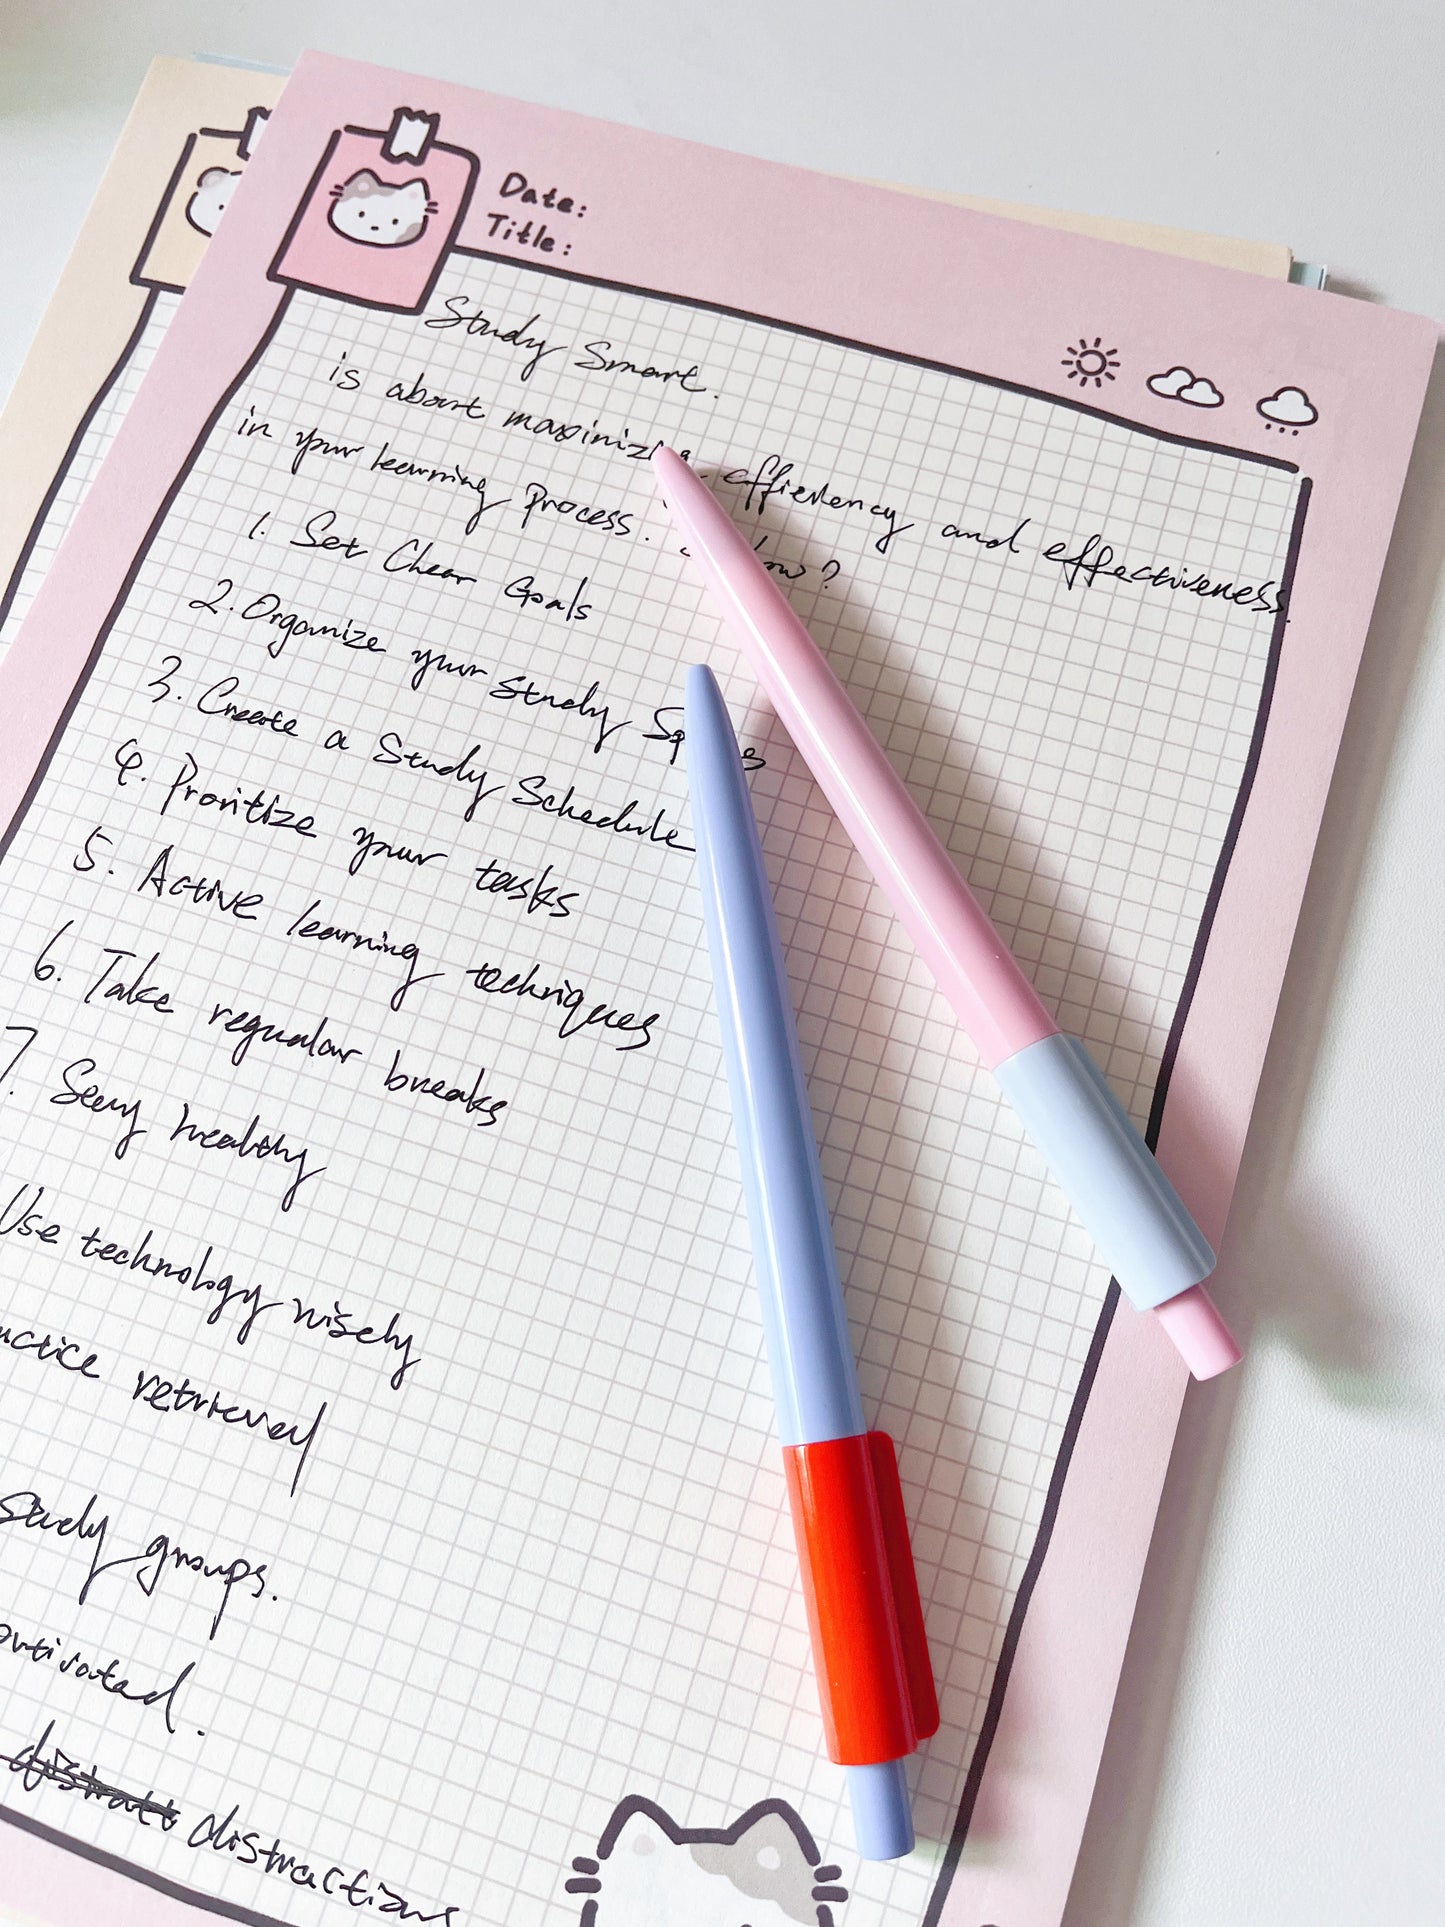 Date:
Title:
Study Smart.
is about maximizing efficiency and effectiveness.
in your learning process. how?
1. Set Clear Goals
2. Organize your study
3. Create a Study Schedule
4. Proritize your tasks
5. Active learning techniques
6. Take regualar breaks
7. Seay healthy
Use technology wisely
retrieval
Study groups.
distratt distractions